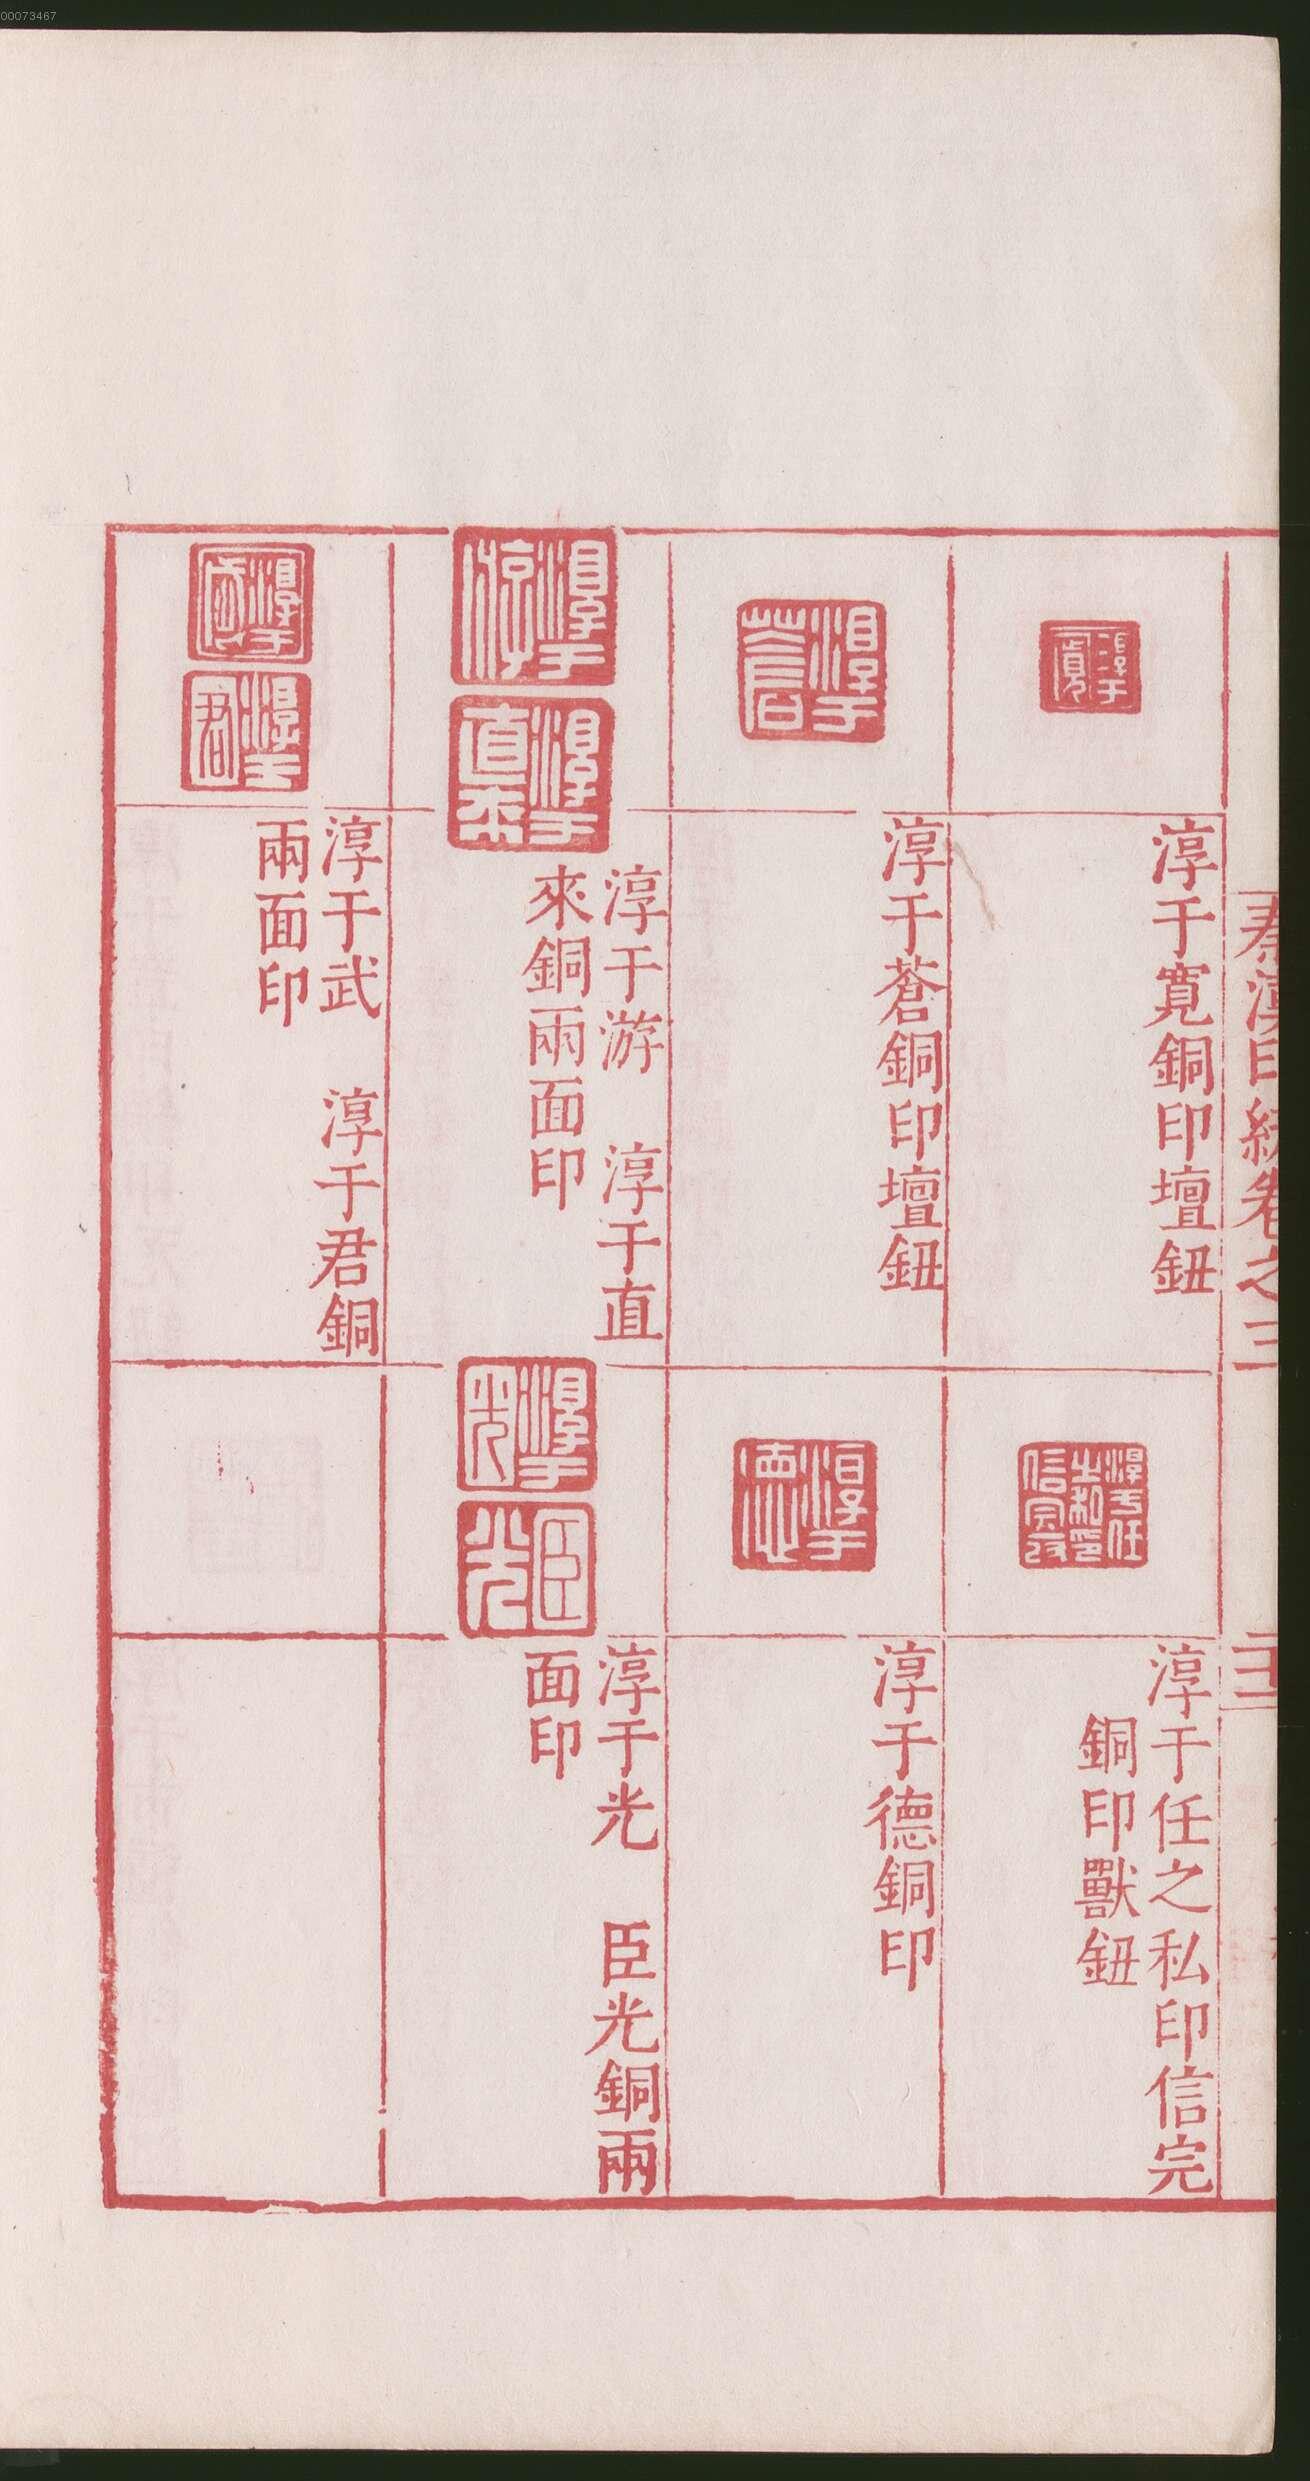 00073467
秦漢印統卷之三
淳于寬銅印壇鈕
淳于任之私印信完
銅印獸鈕
淳于蒼銅印壇鈕
淳于德銅印
淳于游　淳于直
來銅兩面印
淳于光　臣光銅兩
面印
淳于武　淳于君銅
兩面印